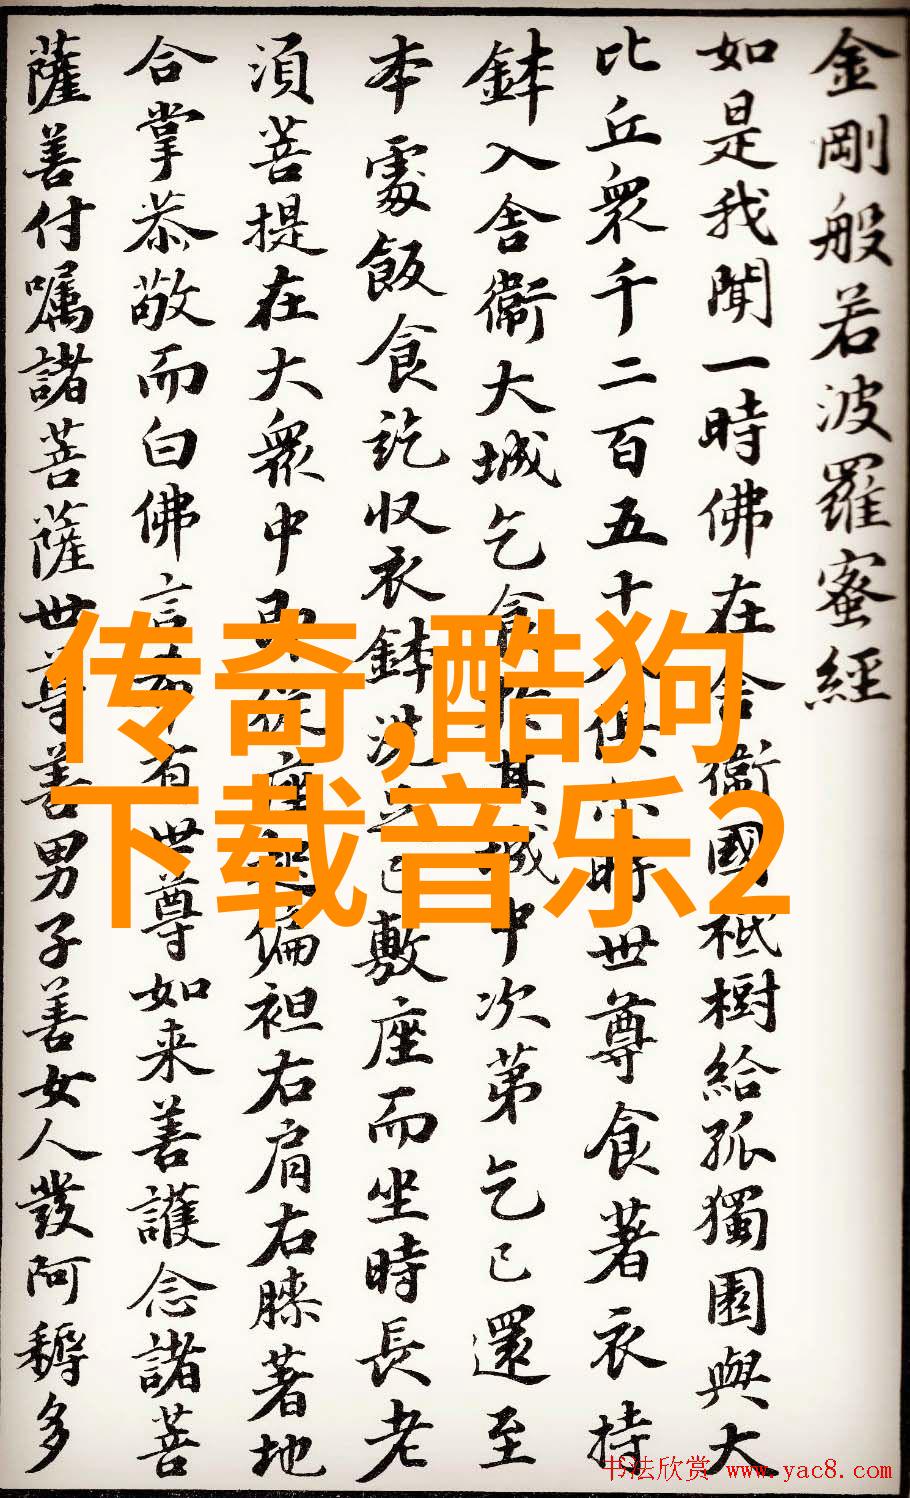 金剛般若波羅蜜經
如是我聞一時佛在舍衞國祇樹給孤獨園與大
比丘衆千二百五十人俱尒時世尊食著衣持
鉢入舍衞大城乞食於其城中次第乞已還至
本處飯食訖収衣鉢洗足已敷座而坐時長老
湏菩提在大衆中即從座起偏袒右肩右膝著地
合掌恭敬而白佛言希有世尊如来善護念諸菩
薩善付嘱諸菩薩世尊善男子善女人發阿耨多
传奇,酷狗
下载音乐2
书法欣赏 www.yac8.com